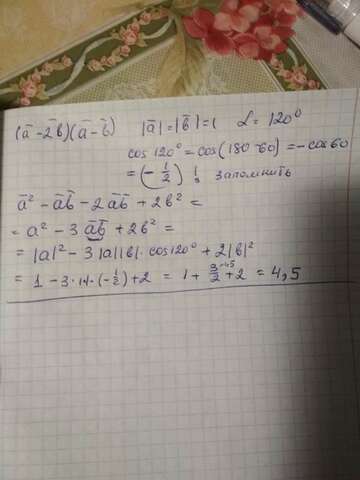 (a̅ - 2b̅)(a̅ - b̅) |a̅| = |b̅| = 1 α = 120°
cos 120° = cos(180-60) = -cos60
= (-1/2) ! запомнить
a̅² - a̅b̅ - 2a̅b̅ + 2b² =
= a² - 3a̅b̅ + 2b² =
= |a|² - 3|a||b|·cos120° + 2|b|²
1 - 3·1·1·(-1/2) + 2 = 1 + 3/2 + 2 = 4,5